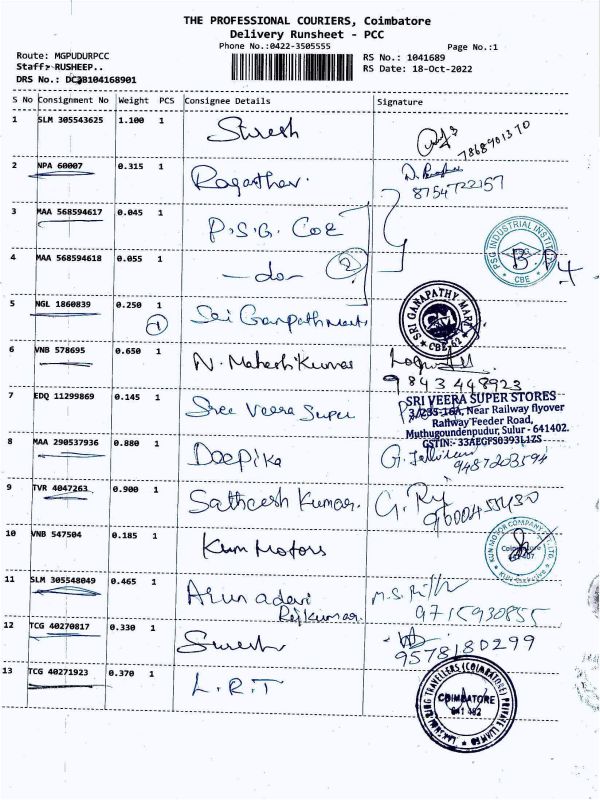 THE PROFESSIONAL COURIERS, Coimbatore
Delivery Runsheet - PCC
Phone No.:0422-3505555
Page No.:1
Route: MGPUDURPCC
RS No.: 1041689
Staff: RUSHEEP..
RS Date: 18-Oct-2022
DRS No.: DC2B104168901
S No Consignment No Weight PCS Consignee Details Signature
1 SLM 305543625 1.100 1 Suresh 7868901370
2 NPA 60007 0.315 1 Ragasthav. 8754722157
3 MAA 568594617 0.045 1 P.S.G. COE
PSG INDUSTRIAL INSTITUTE CBE
4 MAA 568594618 0.055 1 -do- 2
5 NGL 1860839 0.250 1 1 Sri Ganpath Mart
SRI GANAPATHY MART CBE 62
6 VNB 578695 0.650 1 N. Mahesh Kumar
9843448923
7 EDQ 11299869 0.145 1 Sree Veera Super
SRI VEERA SUPER STORES
3/235-16A, Near Railway flyover
Railway Feeder Road,
Muthugoundenpudur, Sulur - 641402.
GSTIN:- 33AEGFS0393L1ZS
8 MAA 290537936 0.880 1 Deepika 9487203594
9 TVR 4047263 0.900 1 Satheesh Kumar. 9600455430
10 VNB 547504 0.185 1 Kun Motors
KUN MOTOR COMPANY PVT. LTD.
11 SLM 305548049 0.465 1 Arunadevi
Rajkumar. 9715930855
12 TCG 40270817 0.330 1 Suresh
9578180299
13 TCG 40271923 0.370 1 L.R.T
TRAVELLERS (COIMBATORE) PRIVATE LIMITED
COIMBATORE
641 402